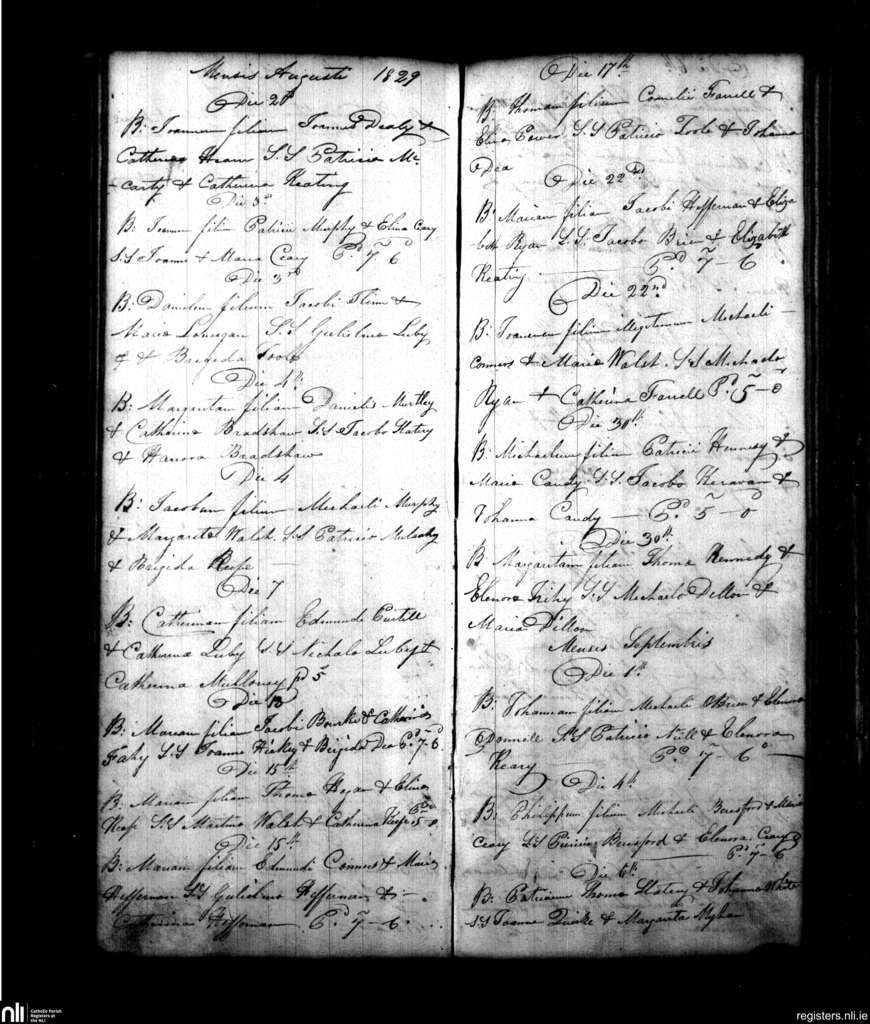 Mensis Augusti 1829
Die 2d
B: Joannem filium Joannis Dealy &
Catherina Hearn S.S Patricio Mc
-carty & Catherina Keating
Die 3d
B: Joannem filiu Patricii Murphy & Elina Ceary
S.S Joanne & Maria Ceary Pd 7 6
Die 3rd
B: Danielem filium Jacobi Flinn &
Maria Lonergan S.S Gulielmo Luby
& Brigida Toole
Die 4th
B: Margaritam filiam Danielis
& Catherina Bradshaw S.S Jacobo Slatery
& Hanora Bradshaw
Die 4
B: Jacobum filium Michaeli Murphy
& Margarita Walsh S.S Patricio Mulcahy
& Brigida Keefe
Die 7
B: Catherinam filiam Edmundi
& Catherina Luby S.S Nicholo Luby &
Catherina Mullowny pd 5
Die 13
B: Mariam filiam Jacobi Bourke & Catherina
Fahy S.S Joanne Hickey & Brigida Dea Pd 7-6
Die 15th
B: Mariam filiam Thoma Hogan & Elina
Keefe S.S Martino Walsh & Catherina Keefe Pd 5-0
Die 15th
B: Mariam filiam Edmundi Connors & Maria
Heffernan S.S Gulielmo Heffernan & :-
Catherina Heffernan Pd 7-6
Die 17th
B: Thomam filium Cornelii Farrell &
Elina Power S.S Patricio Toole & Johanna
O Dea
Die 22nd
B: Mariam filiam Jacobi Heffernan & Eliza
-beth Ryan S.S. Jacobo Brien & Elizabeth
Keating Pd 7-6
Die 22nd
B: Joannem filium illegitimum Michaeli -
Connors & Maria Walsh. S.S Michaelo
Ryan & Catherina Farrell Pd 5-0
Die 30th
B: Michaelum filium Patricii Hennesy &
Maria Candy. S.S. Jacobo &
Johanna Candy — Pd 5-0
Die 30th
B: Margaritam filiam Thoma Kennedy &
Elenora S.S Michaelo Dillon &
Maria Dillon
Mensis Septembris
Die 1st
B: Johannam filiam Michaeli OBrien & Elenora
ODonnell S.S Patricio Niell & Elenora
Keary Pd 7-6
Die 4th
B: Philippum filium Michaeli Beresford & Maria
Ceary S.S Beresford & Elenora Ceary
Pd 7-6
Die 6th
B: Patricium Thoma Slatery & Johanna White
S.S Joanne Quirke & Margarita
nli
Catholic Parish
Registers at
the NLI
registers.nli.ie